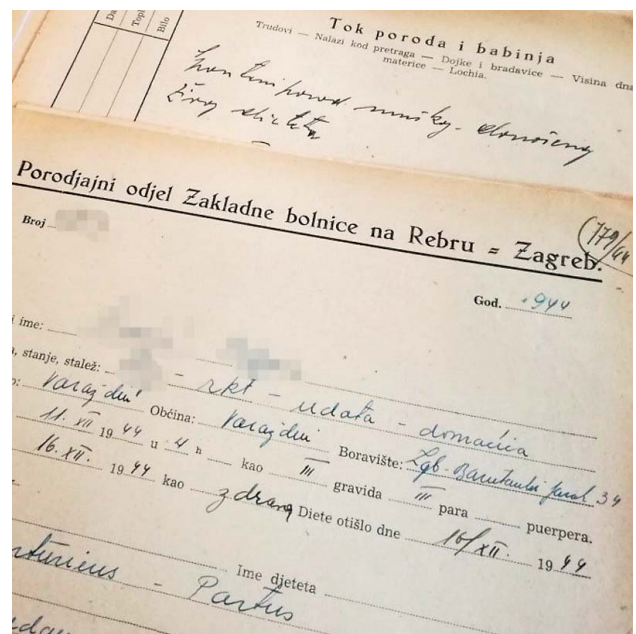 Da
Topl
Bilo
Tok poroda i babinja
Trudovi — Nalazi kod pretraga — Dojke i bradavice — Visina dna
materice — Lochia.
porod muškog donošenog
živog djeteta
Porodjajni odjel Zakladne bolnice na Rebru = Zagreb.
179/44
Broj
God. 1944
i ime:
, stanje, stalež: - rkt - udata - domaćica
o: Varaždin Občina: Varaždin Boravište: Zgb. 34
11. XII 1944 u 4 h kao III gravida III para puerpera.
16. XII. 1944 kao zdrava Diete otišlo dne 16/XII. 1944
Ime djeteta
- Partus